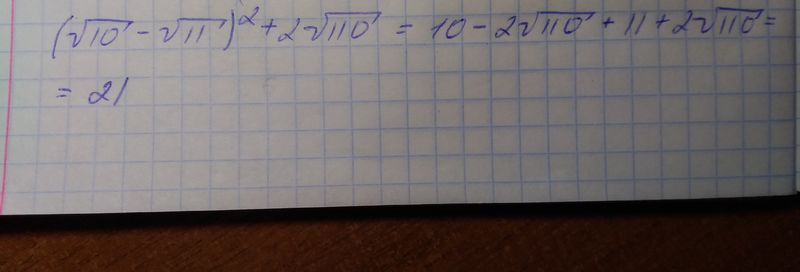 (√10 - √11)² + 2√110 = 10 - 2√110 + 11 + 2√110 =
= 21